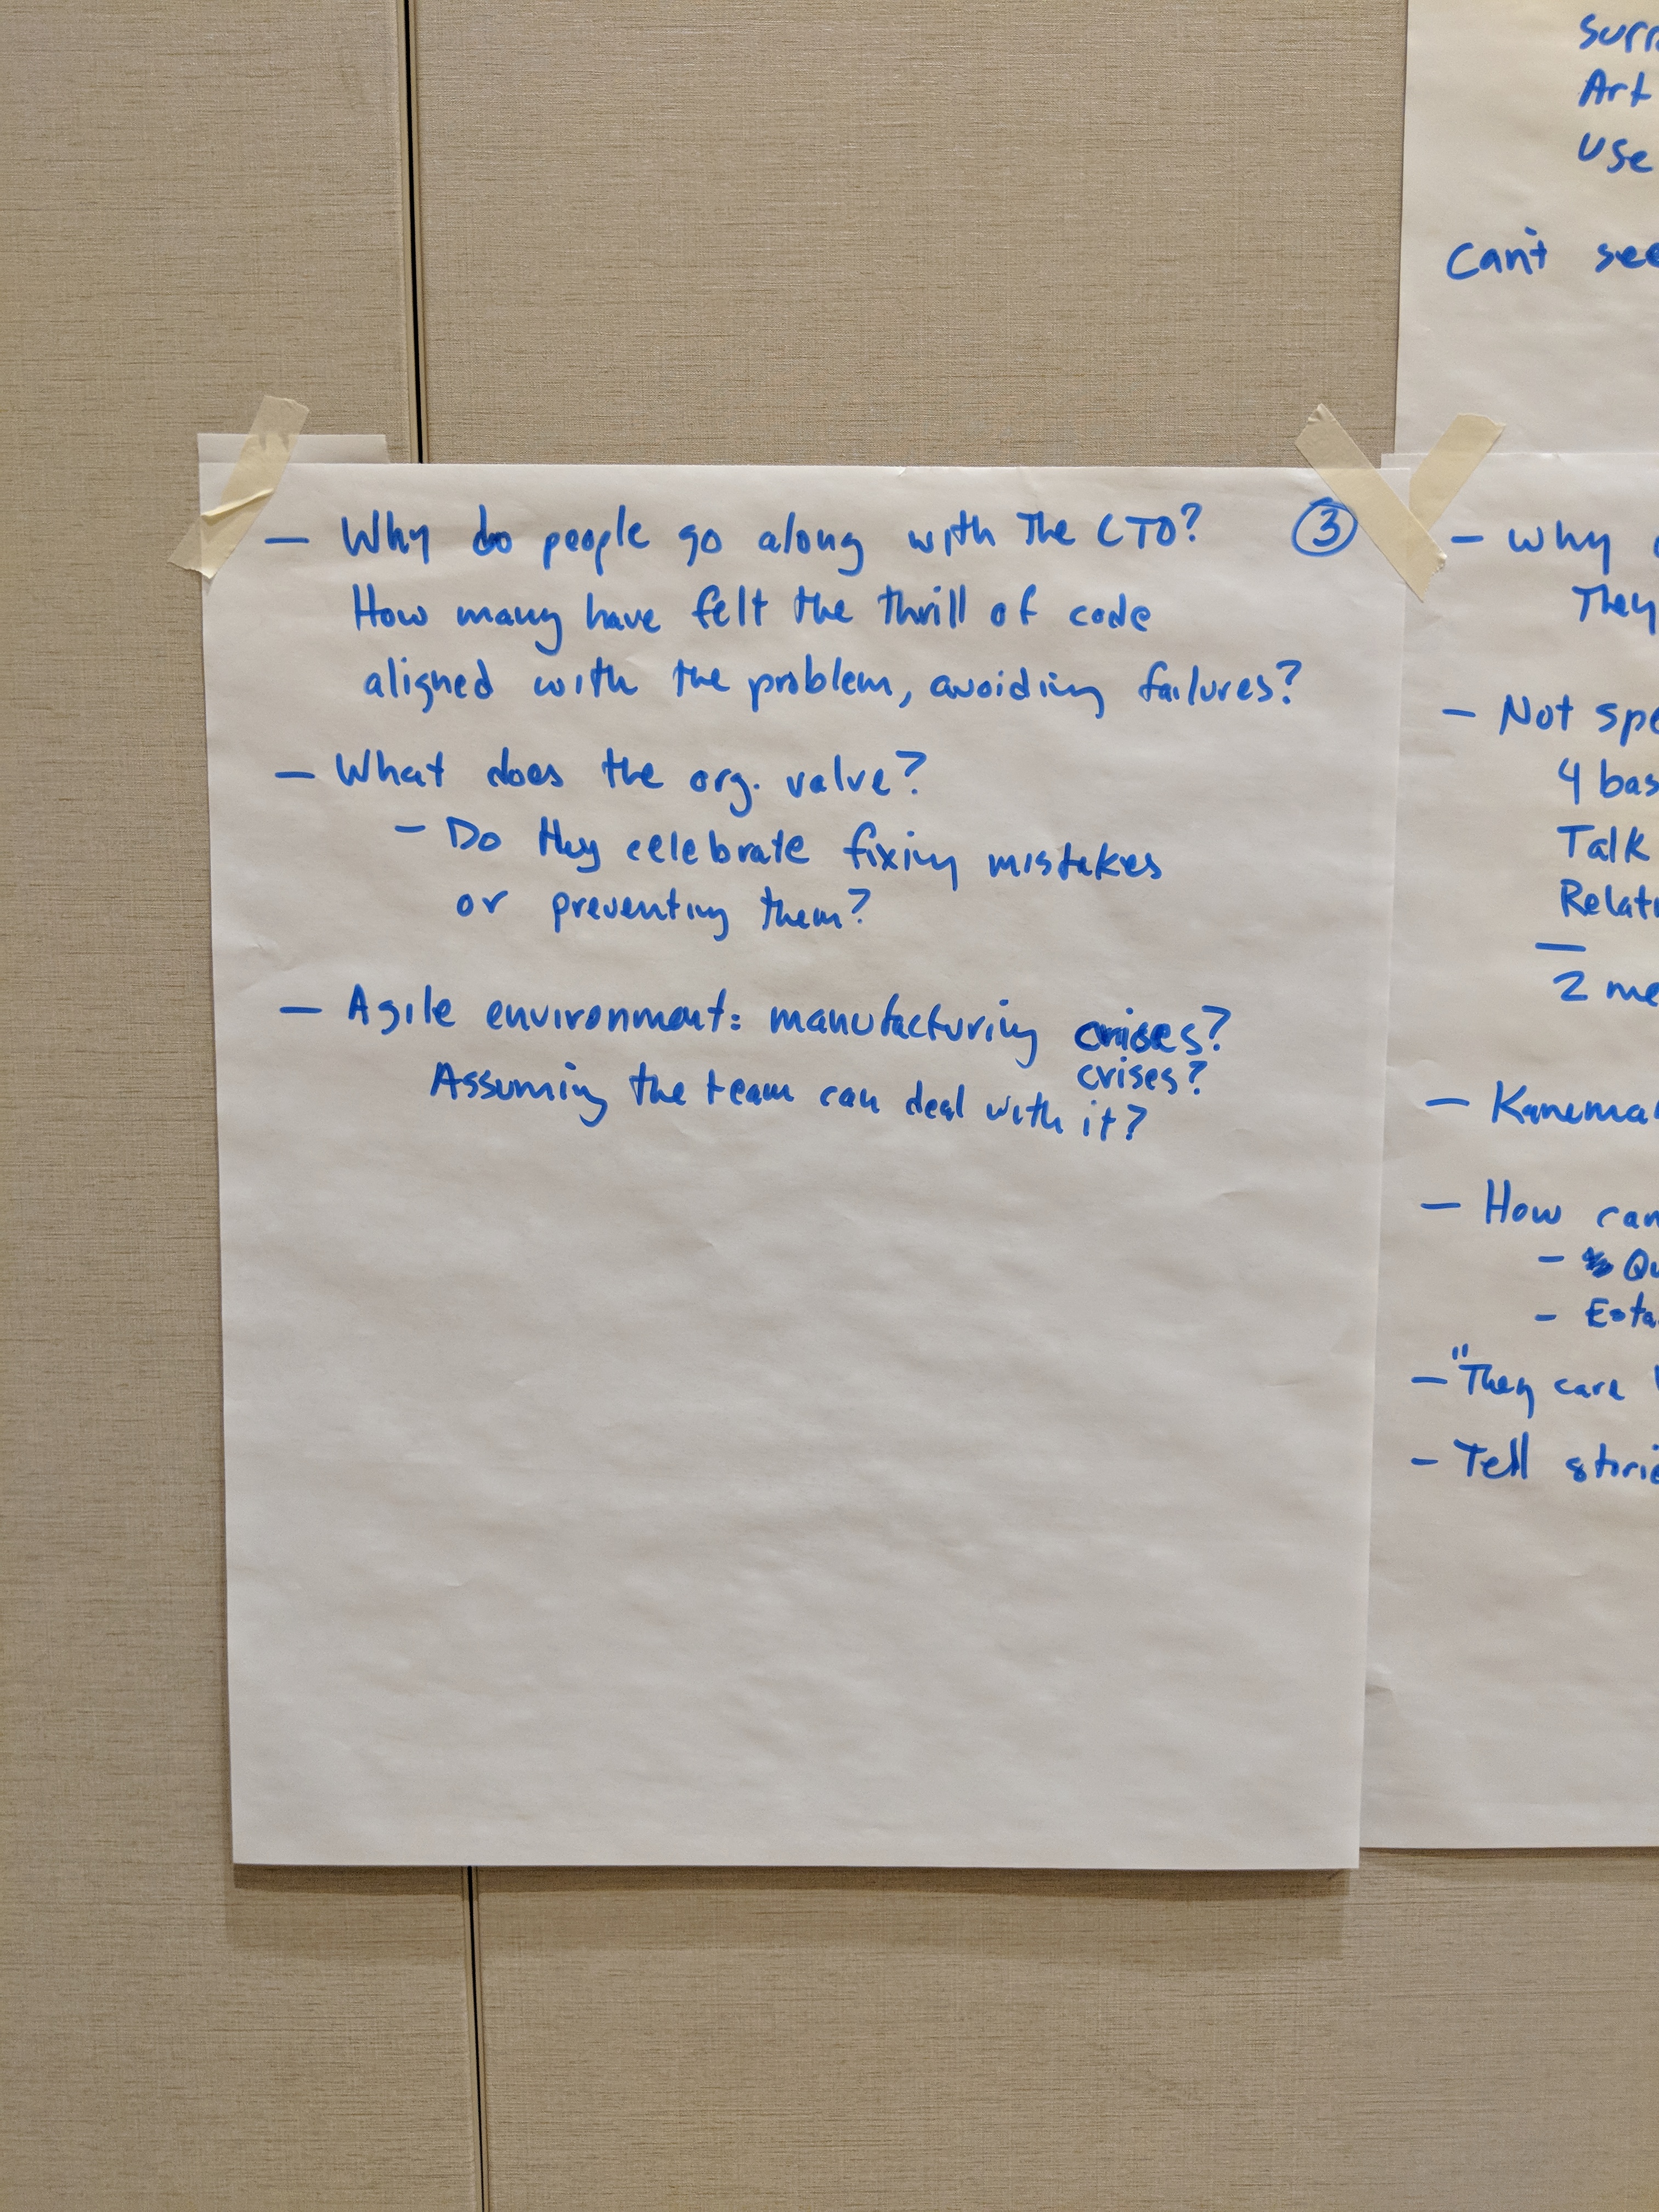 — Why do people go along with the CTO? ③
How many have felt the thrill of code
aligned with the problem, avoiding failures?
— What does the org. value?
– Do they celebrate fixing mistakes
or preventing them?
— Agile environment: manufacturing crises?
crises?
Assuming the team can deal with it?
Art
Use
Can't see
— Why
They
— Not
4
Talk
—
2
—
— How can
–
–
— "They care
– Tell